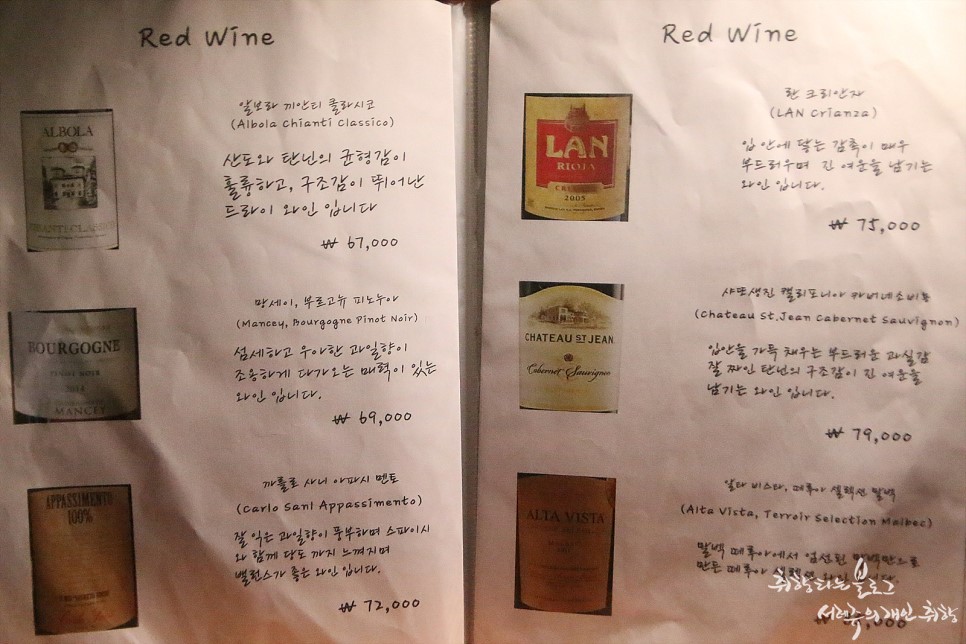 Red Wine
ALBOLA
알보라 끼안티 클라시코
(Albola Chianti Classico)
산도와 탄닌의 균형감이
훌륭하고, 구조감이 뛰어난
드라이 와인 입니다
₩ 67,000
BOURGOGNE
PINOT NOIR
2014
MANCEY
망세이, 부르고뉴 피노누아
(Mancey, Bourgogne Pinot Noir)
섬세하고 우아한 과일향이
조용하게 다가오는 매력이 있는
와인 입니다.
₩ 69,000
APPASSIMENTO
100%
까를로 사니 아파시멘토
(Carlo Sani Appassimento)
잘 익은 과일향이 풍부하며 스파이시
와 함께 당도 까지 느껴지며
밸런스가 좋은 와인 입니다.
₩ 72,000
Red Wine
LAN
RIOJA
2005
란 크리안자
(LAN Crianza)
입 안에 닿는 감촉이 매우
부드러우며 긴 여운을 남기는
와인 입니다.
₩ 75,000
CHATEAU ST JEAN
Cabernet Sauvignon
샤또생진 캘리포니아 카버네소비뇽
(Chateau St.Jean Cabernet Sauvignon)
입안을 가득 채우는 부드러운 과실감
잘 짜인 탄닌의 구조감이 긴 여운을
남기는 와인 입니다.
₩ 79,000
ALTA VISTA
알타 비스타, 떼루아 셀렉션 말벡
(Alta Vista, Terroir Selection Malbec)
말벡 떼루아에서 엄선된 말벡만으로
만든 떼루아 셀렉션
취향타는 블로그
서면욱의 개인 취향